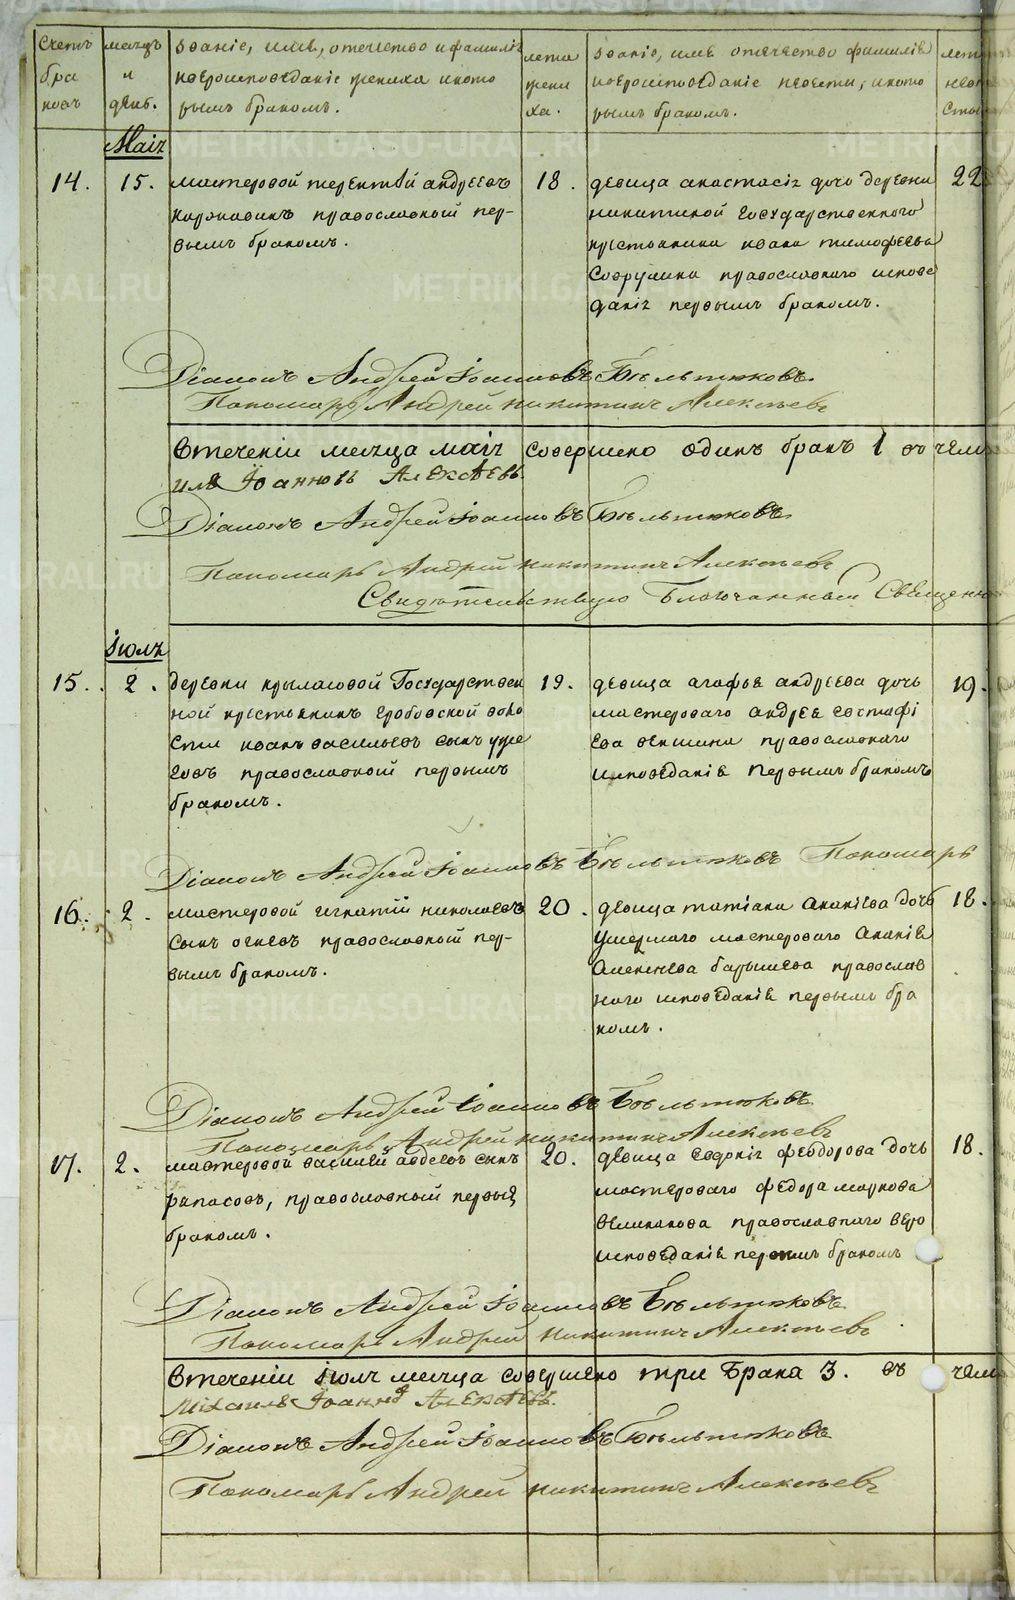 Счетъ браковъ
месяцъ и день.
Званіе, имя, отечество и фамилія
и вероисповеданіе жениха и кото
рымъ бракомъ.
лета жени ха.
Званіе, имя отечество фамилія
и вероисповеданіе невесты, и кото
рымъ бракомъ.
Маія
14. 15.
мастеровой терентій андреевъ
православный пер-
вымъ бракомъ.
18.
девица анастасія дочь деревни
никитиной государственного
крестьянина ивана тимофеева
православнаго испове
данія первымъ бракомъ.
22
Діаконъ Андрей Іоанновъ Бельтюковъ.
Пономарь Андрей никитинъ Алексѣевъ
Втеченіи месяца маія совершено одинъ бракъ 1 въ чемъ
Іоанновъ Алексѣевъ.
Діаконъ Андрей Іоанновъ Бельтюковъ
Пономарь Андрей никитинъ Алексѣевъ
Свидетельствую Благочинный Священн
Іюля
15. 2.
деревни крыласовой Государствен
ной крестьянинъ
иванъ васильевъ сынъ
православной первымъ
бракомъ.
19.
девица агафья андреева дочь
мастероваго андрея евстафі
ева векшина православнаго
исповѣданія первымъ бракомъ
19.
Діаконъ Андрей Іоанновъ Бельтюковъ Пономарь
16. 2.
мастеровой игнатій николаевъ
сынъ огневъ православный пер-
вымъ бракомъ.
20.
девица татіана ананіева дочь
умершаго мастероваго ананія
алексѣева барышева православ
наго исповѣданія первымъ бра
комъ.
18.
Діаконъ Андрей Іоанновъ Бельтюковъ
Пономарь Андрей никитинъ Алексѣевъ
17. 2.
мастеровой василей авдеевъ сынъ
рапасовъ, православный первый
бракомъ.
20.
девица евдокія феодорова дочь
мастероваго федора маркова
великанова православнаго веро
исповѣданія первымъ бракомъ
18.
Діаконъ Андрей Іоанновъ Бельтюковъ
Пономарь Андрей никитинъ Алексѣевъ
Втеченіи іюля месяца совершено три брака 3. въ чемъ
Алексѣевъ.
Діаконъ Андрей Іоанновъ Бельтюковъ
Пономарь Андрей никитинъ Алексѣевъ
METRIKI.GASO-URAL.RU